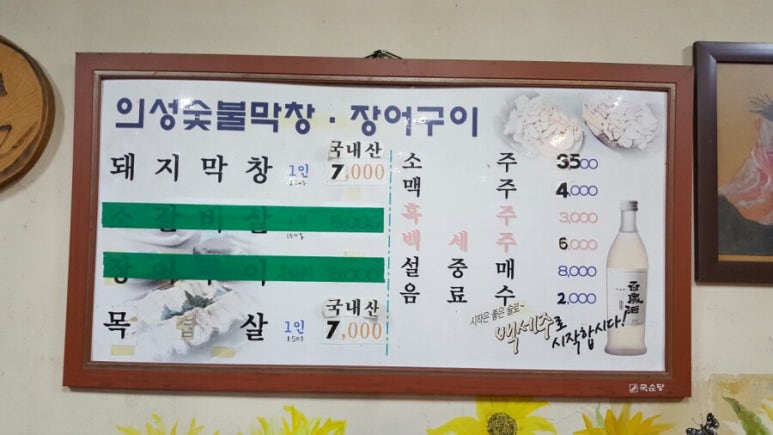 의성숯불막창 · 장어구이
돼지막창 1인 국내산 7,000
소갈비살
목 살 1인 국내산 7,000
소 주 3500
맥 주 4,000
흑 주 3,000
백 세 주 6,000
설 중 매 8,000
음 료 수 2,000
시작은 좋은 술로~
백세주로 시작합시다!
백歲酒
국순당